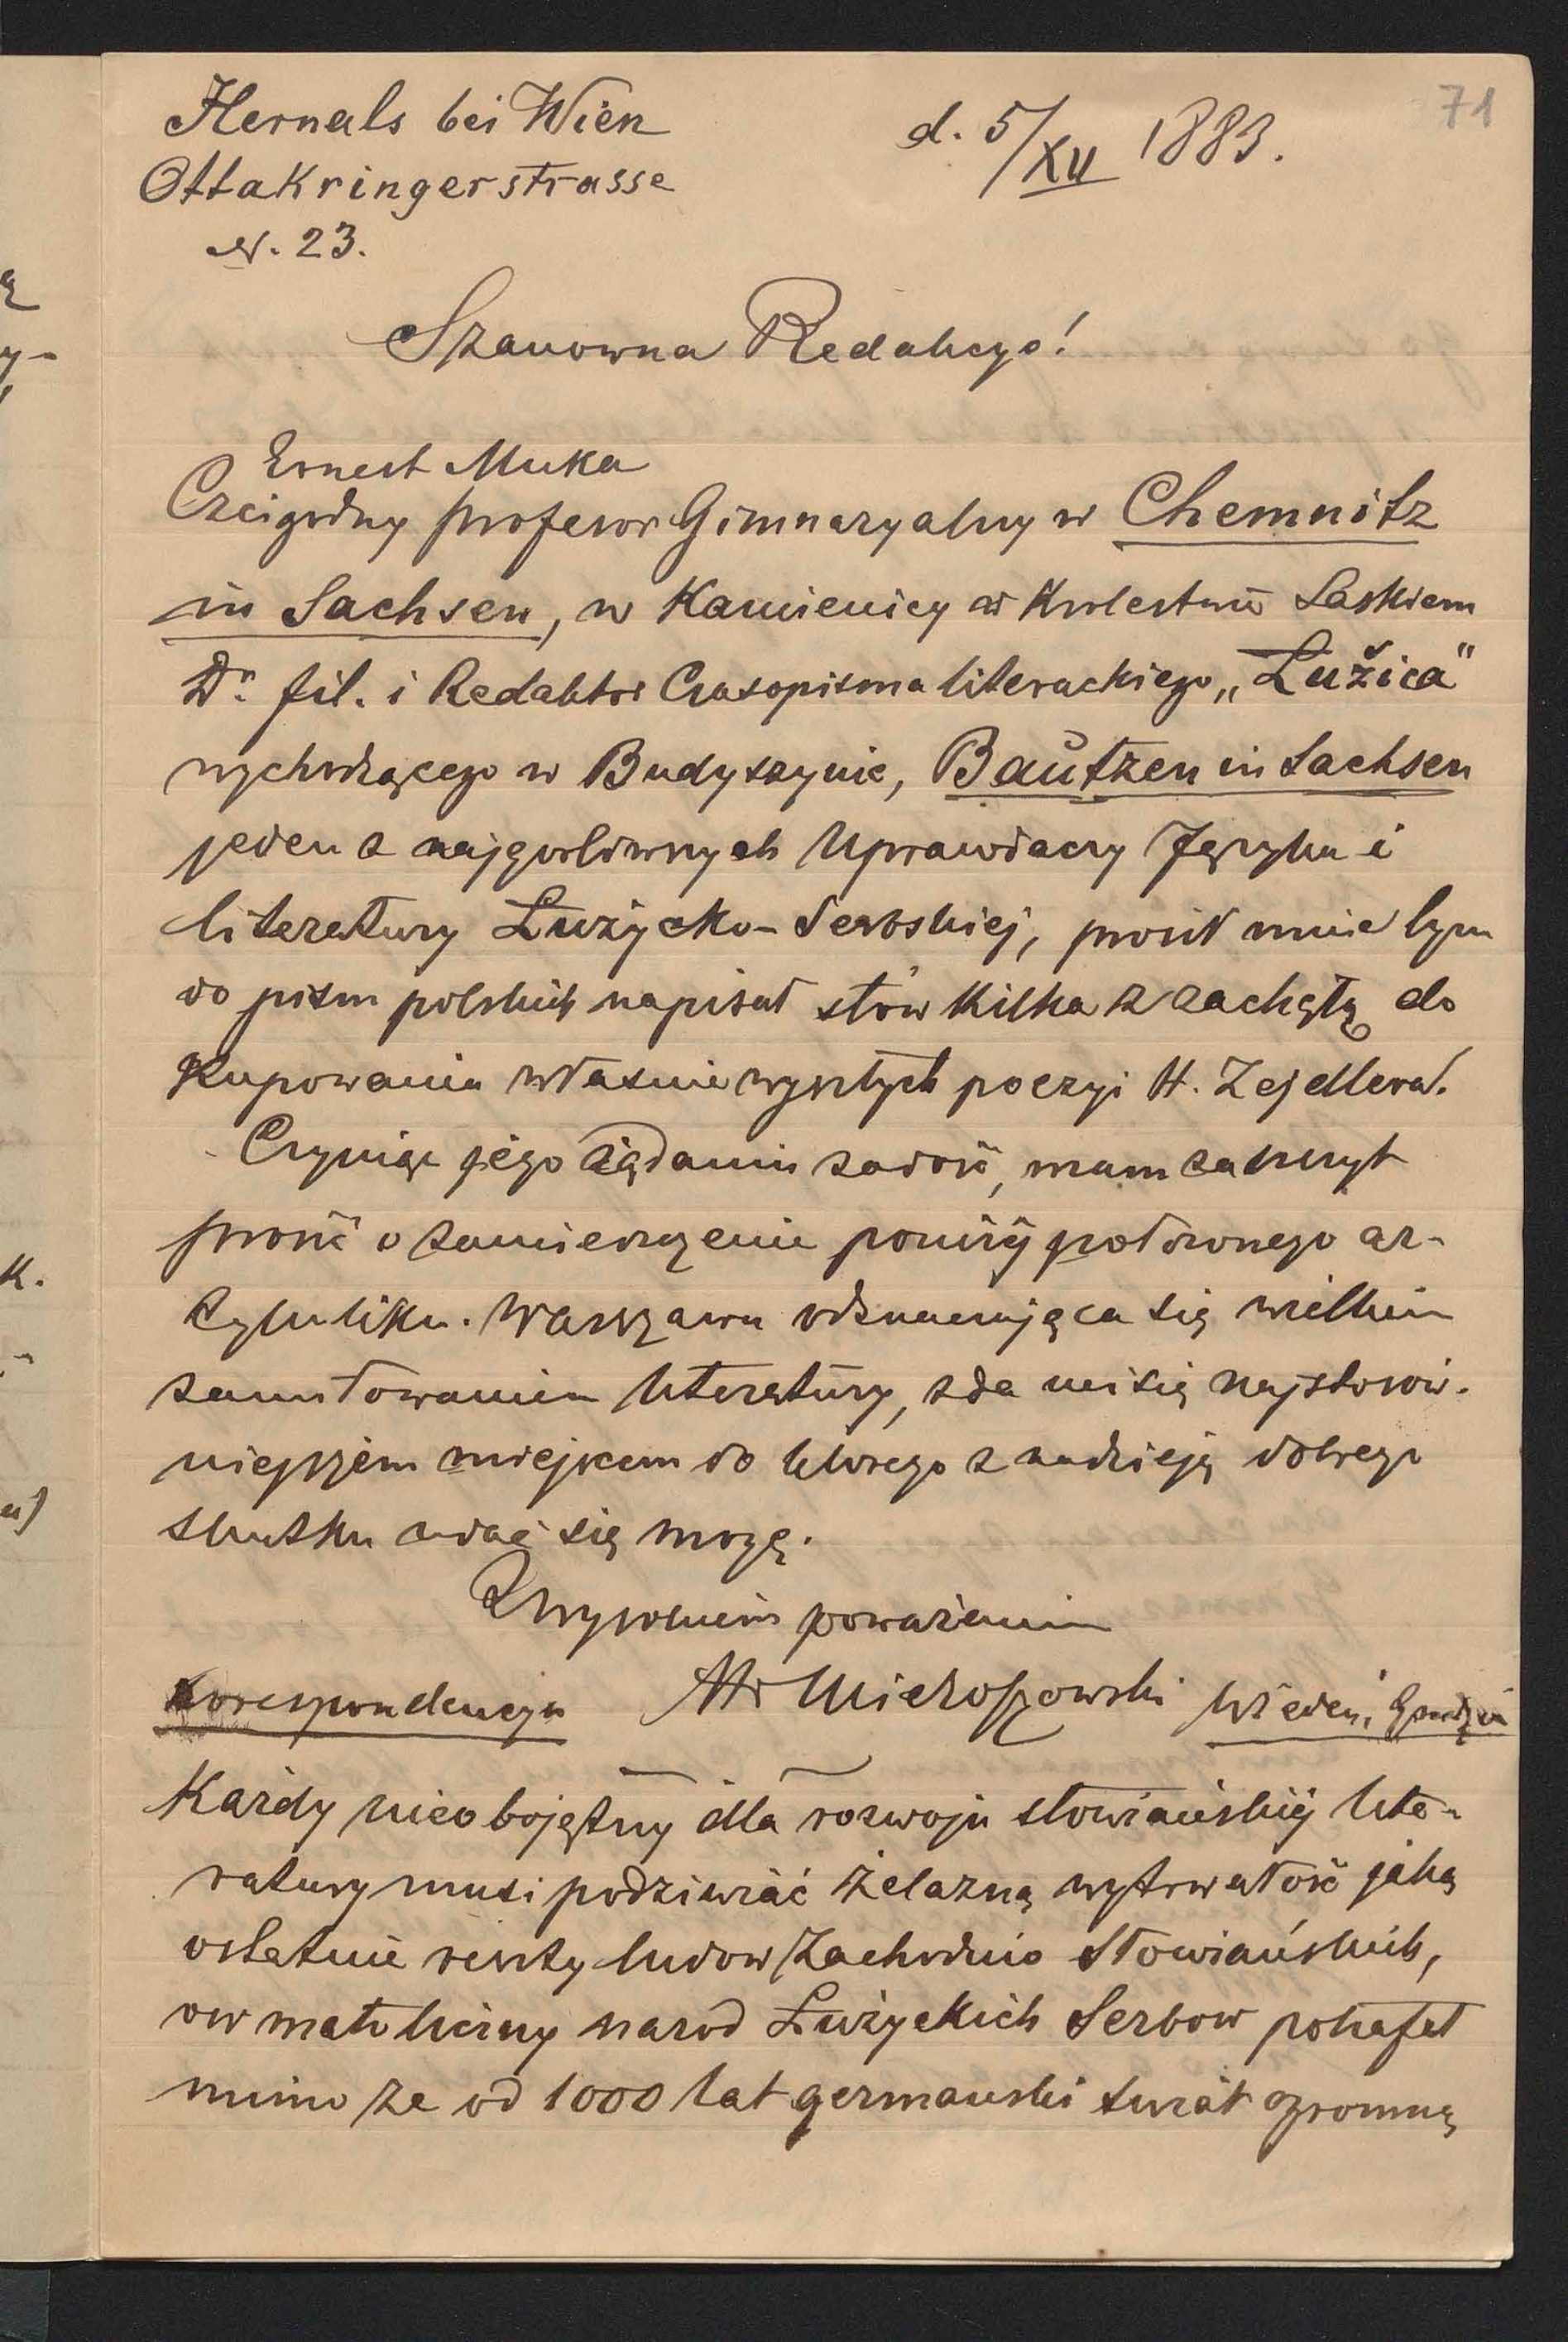 71
Hernals bei Wien
d. 5/XII 1883.
Ottakringerstrasse
N. 23.
Szanowna Redakcyo!
Ernest Muka
Czcigodny profesor Gimnazyalny w Chemnitz
in Sachsen, w Kamienicy w Krolestwie Saskiem
Dr. fil. i Redaktor Czasopisma literackiego „Łužica"
wychodzącego w Budyszynie, Bautzen in Sachsen
jeden z najgorliwszych Uprawiaczy Języka i
literatury Łużycko-Serbskiej, prosił mnie bym
do pism polskich napisał słów kilka z zachętą do
Kupowania właśnie wyszłych poezyi H. Zejdlera.
Czyniąc jego żądaniu zadość, mam zaszczyt
prosić o zamieszczenie poniżej położonego ar-
tykuliku. Warszawa odznaczająca się wielkim
zamiłowaniem literatury, zda mi się najstosow-
niejszem miejscem do którego z nadzieją dobrego
skutku udać się mogę.
Z wysokiem poważaniem
Korespondencya
Mieroszowski
Wiedeń, Grudzień
Każdy nieobojętny dla rozwoju słowiańskiej lite-
ratury musi podziwiać żelazną wytrwałość jaką
ostatnie reszty ludow Zachodnio Słowiańskich,
ow mało liczny narod Łużyckich Serbow potrafał
mimo że od 1000 lat germanski świat ogromną